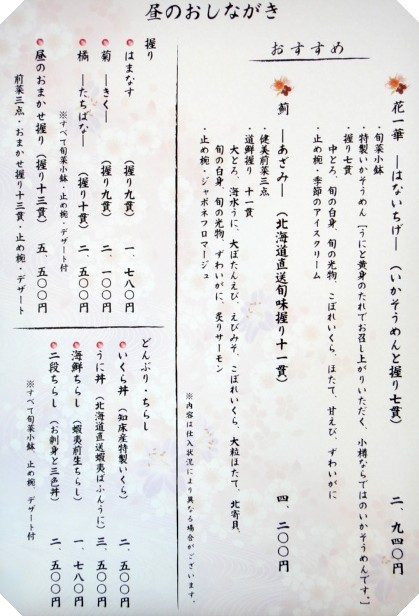 昼のおしながき
おすすめ
花一華 ―はないちげ― (いかそうめんと握り七貫) 二、九四〇円
・旬菜小鉢
・特製いかそうめん「うにと黄身のたれでお召し上がりいただく、小樽ならではのいかそうめんです。」
・握り七貫
中とろ、旬の白身、旬の光物、こぼれいくら、ほたて、甘えび、ずわいがに
・止め椀・季節のアイスクリーム
薊 ―あざみ― (北海道直送旬味握り十一貫) 四、二〇〇円
・健美前菜三点
・道鮮握り 十一貫
大とろ、海水うに、大ぼたんえび、えびみそ、こぼれいくら、大粒ほたて、北寄貝、
旬の白身、旬の光物、ずわいがに、炙りサーモン
・止め椀・ジャポネフロマージュ
※内容は仕入状況により異なる場合がございます。
握り
はまなす (握り九貫) 一、七八〇円
菊 ―きく― (握り九貫) 二、一〇〇円
橘 ―たちばな― (握り十貫) 二、五〇〇円
※すべて旬菜小鉢・止め椀・デザート付
昼のおまかせ握り (握り十三貫) 五、五〇〇円
前菜三点・おまかせ握り十三貫・止め椀・デザート
どんぶり・ちらし
いくら丼 (知床産特製いくら) 二、五〇〇円
うに丼 (北海道直送蝦夷ばふんうに) 三、五〇〇円
海鮮ちらし (蝦夷前生ちらし) 一、七八〇円
二段ちらし (お刺身と三色丼) 二、五〇〇円
※すべて旬菜小鉢 止め椀 デザート付